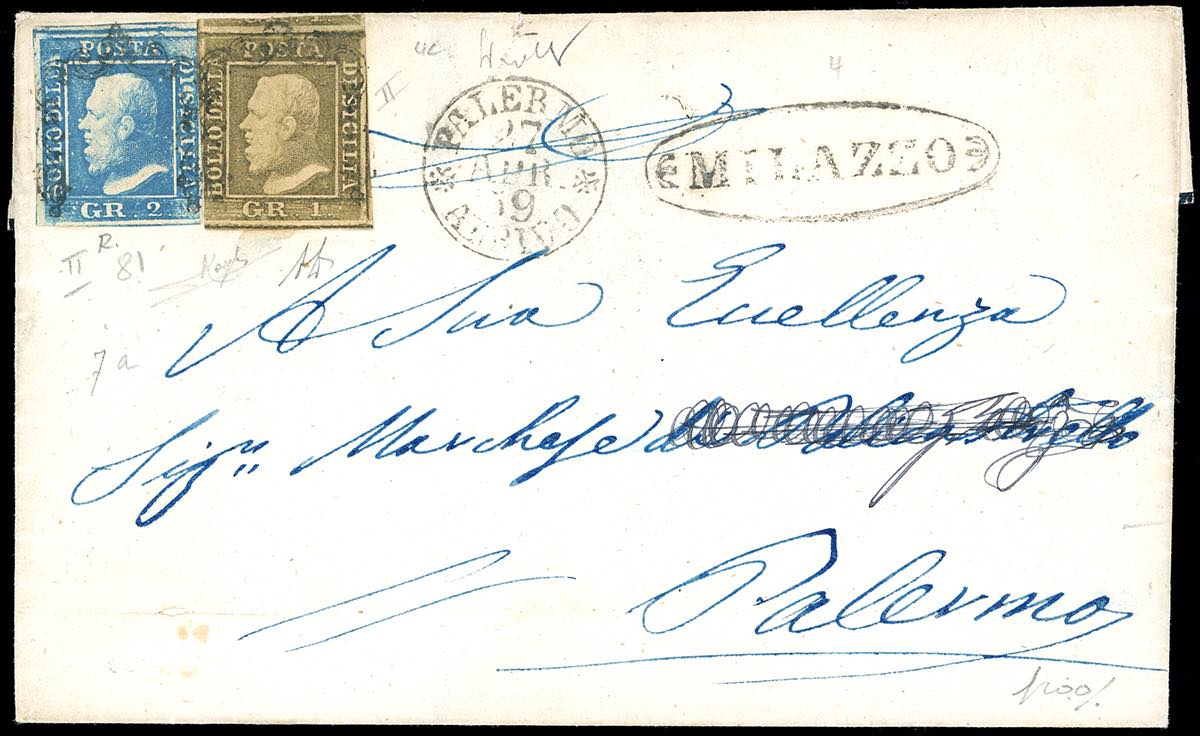 POSTA
BOLLO DELLA
DI SICILIA
GR. 2.
POSTA
BOLLO DELLA
DI SICILIA
GR. 1.
II
4c
4
PALERMO
27
APR.
59
ARRIVO
MILAZZO
II R. 81
7a
A Sua Eccellenza
Sig.r Marchese
Palermo